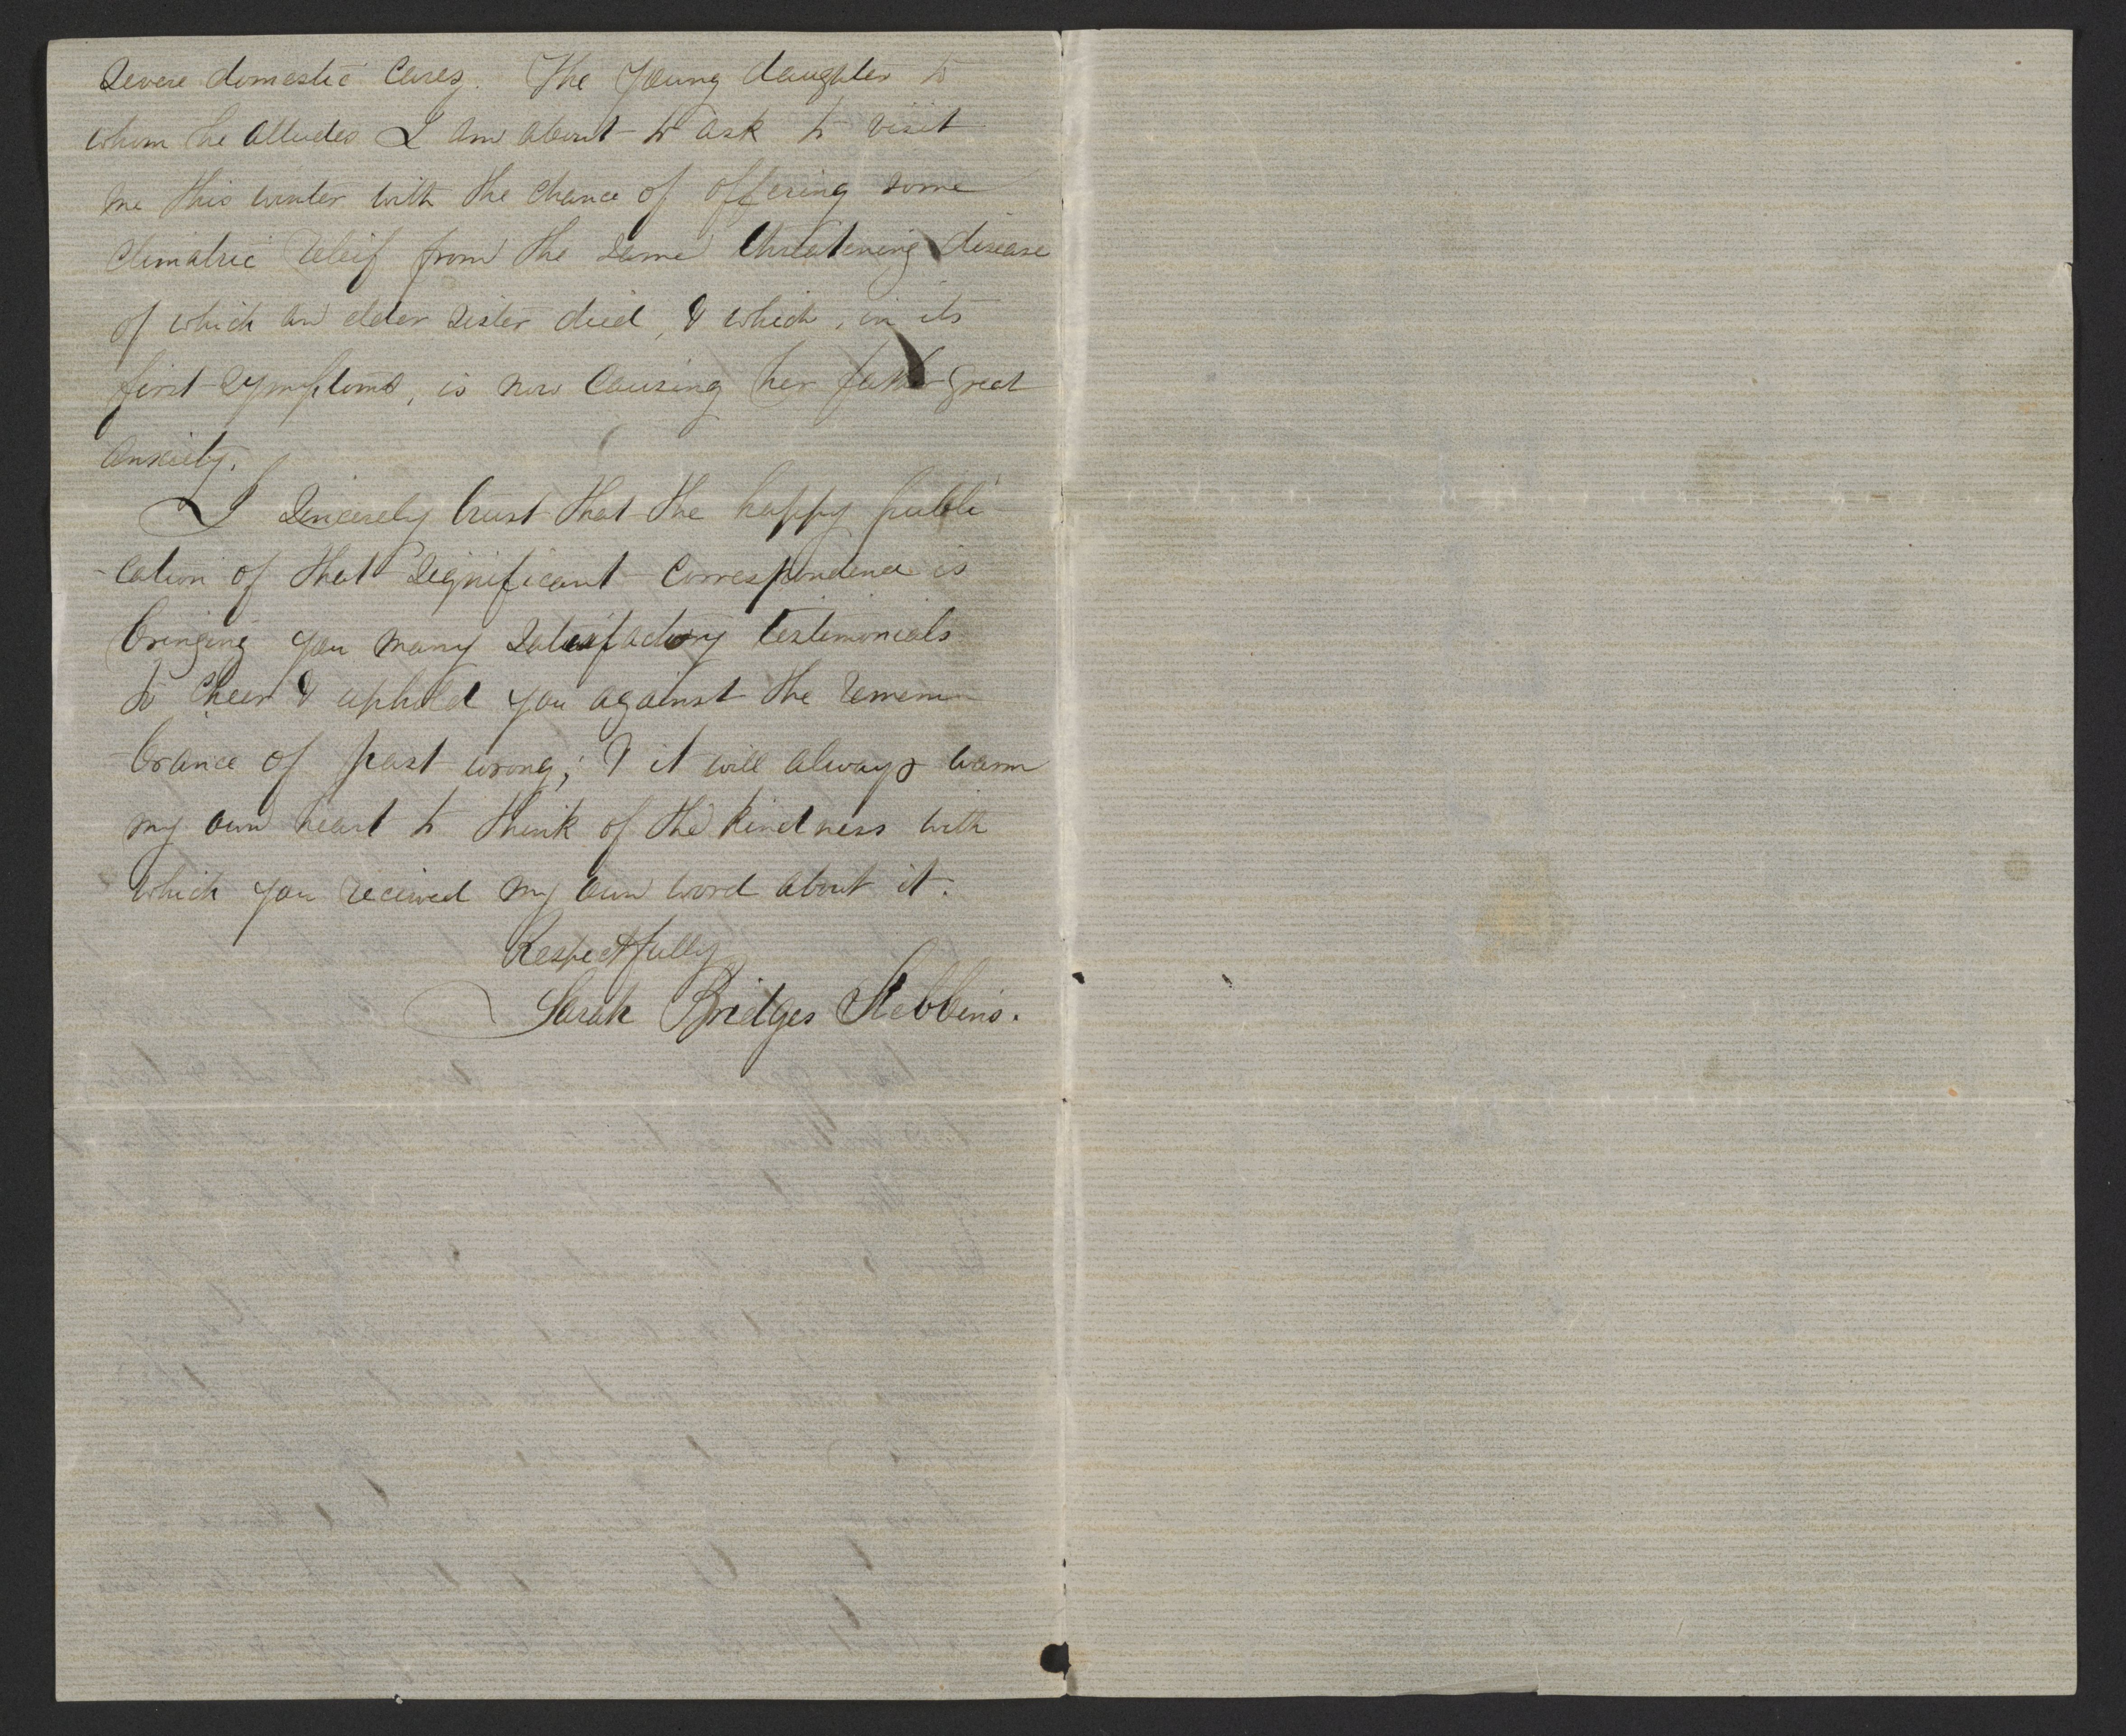 severe domestic cares. The young daughter to
whom he alludes I am about to ask to visit
me this winter with the chance of offering some
climatric releif from the same threatening disease
of which an elder sister died, & which, in its
first symptoms, is now causing her father great
anxiety.
I sincerely trust that the happy publi-
-cation of that significant correspondence is
bringing you many satisfactory testimonials
to cheer & uphold you against the remem-
-brance of past wrong; & it will always warm
my own heart to think of the kindness with
which you received my own word about it.
Respectfully
Sarah Bridges Stebbins.